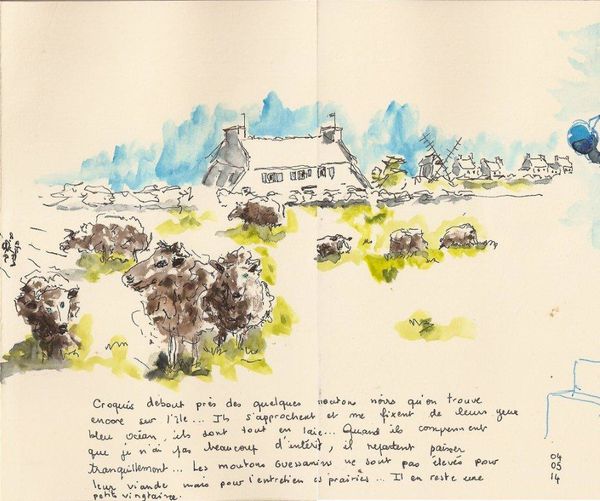 Croquis debout près des quelques moutons noirs qu'on trouve
encore sur l'île... Ils s'approchent et me fixent de leurs yeux
bleu océan, ils sont tout en laie... Quand ils comprennent
que je n'ai pas beaucoup d'intérêt, il repartent paisser
tranquillement... Les moutons Ouessanins ne sont pas élevés pour
leur viande mais pour l'entretien es prairies... Il en reste une
petite vingtaine.
04
05
14